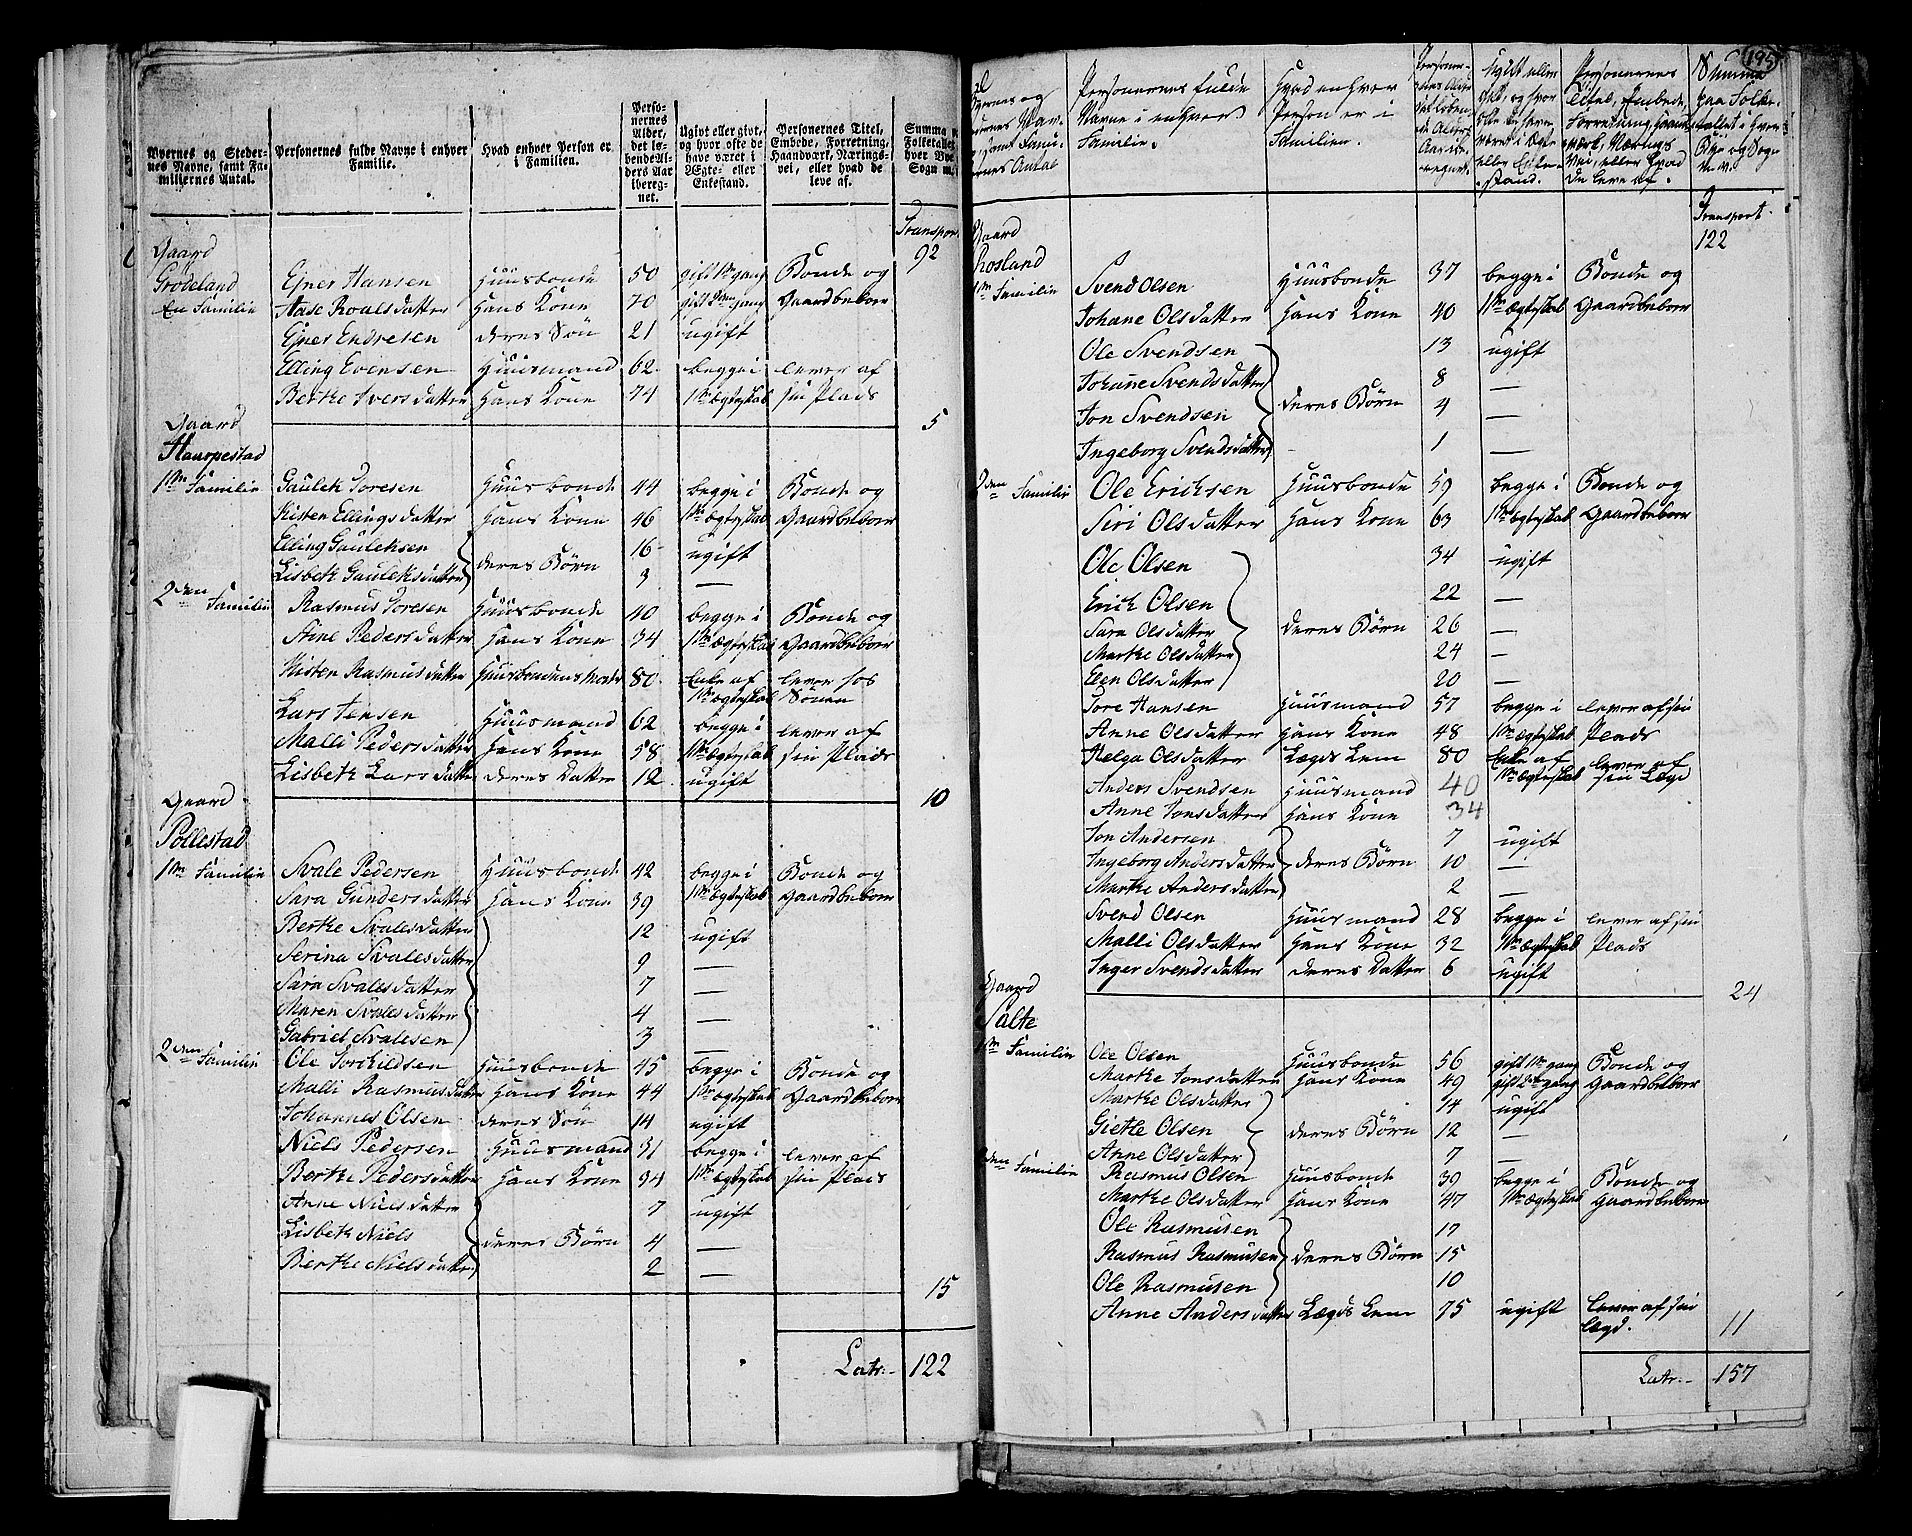 Byernes og Stedernes Navne, samt Familiernes Antal. | Personernes fulde Navne i enhver Familie. | Hvad enhver Person er i Familien. | Personernes Alder, det løbende Alders Aar iberegnet. | Ugivt eller givt, og hvor ofte de have været i Ægte- eller Enkestand. | Personernes Titel, Embede, Forretning, Haandværk, Næringsvei, eller hvad de leve af. | Summa
Folketallet
hver Bye
Sogn
Transpor
92
Gaard
Grødeland | Ejner Hansen | Huusbonde | 50 | gift 1ste gang | Bonde og
En Familie | Aase Roalsdatter | Hans Kone | 70 | gift 2den gang | Gaardbeboer
Ejner Endresen | deres Søn | 21 | ugift
Elling Evensen | Huusmand | 62 | begge i | lever af
Berthe Iversdatter | Hans Kone | 74 | 1ste Ægteskab | sin Plads
5
Gaard
Haugpestad
1ste Familie | Gaulek Toresen | Huusbonde | 44 | begge i | Bonde og
Kisten Ellingsdatter | Hans Kone | 46 | 1ste Ægteskab | Gaardbeboer
Elling Gauleksen | deres Børn | 16 | ugift
Lisbeth Gauleksdatter | 3 | —
2den Familie | Rasmus Toresen | Huusbonde | 40 | begge i | Bonde og
Stine Pedersdatter | Hans Kone | 34 | 1ste Ægteskab | Gaardbeboer
Kisten Rasmusdatter | Huusbondens Moder | 80 | Enke af | lever hos
1ste Ægteskab | Sønen
Lars Jensen | Huusmand | 62 | begge i | lever af
Malli Pedersdatter | Hans Kone | 58 | 1ste Ægteskab | sin Plads
Lisbeth Larsdatter | deres Datter | 12 | ugift
10
Gaard
Pollestad
1ste Familie | Svale Pedersen | Huusbonde | 42 | begge i | Bonde og
Sara Gundersdatter | Hans Kone | 39 | 1ste Ægteskab | Gaardbeboer
Berthe Svalesdatter | 12 | ugift
Serina Svalesdatter | 9 | —
Sara Svalesdatter | 7 | —
Maren Svalesdatter | 4 | —
Gabriel Svalesen | 3 | —
2den Familie | Ole Torkildsen | Huusbonde | 45 | begge i | Bonde og
Malli Rasmusdatter | Hans Kone | 44 | 1ste Ægteskab | Gaardbeboer
Johannes Olsen | deres Søn | 14 | ugift
Niels Pedersen | Huusmand | 31 | begge i | lever af
Berthe Pedersdatter | Hans Kone | 34 | 1ste Ægteskab | sin Plads
Anne Nielsdatter | 7 | ugift
Lisbeth Niels | deres Børn | 4 | —
Berthe Nielsdatter | 2 | —
15
Latr:- 122
195
Personernes fulde Navne i enhver Familie. | Hvad enhver Person er i Familien.
Transport
122
Gaard
1ste Familie | Svend Olsen | Huusbonde | 37 | begge i | Bonde og
Johane Olsdatter | Hans Kone | 40 | 1ste Ægteskab | Gaardbeboer
Ole Svendsen | 13 | ugift
Johane Svendsdatter | 8 | —
Jon Svendsen | deres Børn | 4 | —
Ingeborg Svendsdatter | 1 | —
2den Familie | Ole Ericksen | Huusbonde | 59 | begge i | Bonde og
Siri Olsdatter | Hans Kone | 63 | 1ste Ægteskab | Gaardbeboer
Ole Olsen | 34 | ugift
Erick Olsen | 22 | —
Sara Olsdatter | deres Børn | 26 | —
Marthe Olsdatter | 24 | —
Elen Olsdatter | 20 | —
Tore Hansen | Huusmand | 57 | begge i | lever af sin
Anne Olsdatter | Hans Kone | 48 | 1ste Ægteskab | Plads
Helga Olsdatter | Lægds Lem | 80 | Enke af | lever af
1ste Ægteskab | sin Lægd
Anders Svendsen | Huusmand | 40
Anne Jonsdatter | Hans Kone | 34
Jon Andersen | 7 | ugift
Ingeborg Andersdatter | deres Børn | 10 | —
Marthe Andersdatter | 2 | —
Svend Olsen | Huusmand | 28 | begge i | lever af sin
Malli Olsdatter | Hans Kone | 32 | 1ste Ægteskab | Plads
Inger Svendsdatter | deres Datter | 6 | ugift
24
Gaard
Salte
1ste Familie | Ole Olsen | Huusbonde | 56 | gift 1ste gang | Bonde og
Marthe Jonsdatter | Hans Kone | 49 | gift 2den gang | Gaardbeboer
Marthe Olsdatter | 14 | ugift
Giethe Olsen | deres Børn | 12 | —
Anne Olsdatter | 7 | —
2den Familie | Rasmus Olsen | Huusbonde | 39 | begge i | Bonde og
Marthe Olsdatter | Hans Kone | 47 | 1ste Ægteskab | Gaardbeboer
Ole Rasmusen | 17
Rasmus Rasmusen | deres Børn | 15
Ole Rasmusen | 10
Anne Andersdatter | Lægds Lem | 75 | ugift | lever af sin
lægd.
11
Latr:- 157